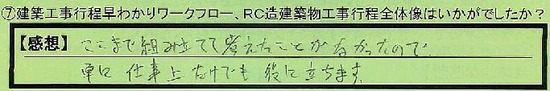 ⑦建築工事行程早わかりワークフロー、RC造建築物工事行程全体像はいかがでしたか？
【感想】ここまで組み立てて覚えたことがなかったので
単に仕事上だけでも役に立ちます。